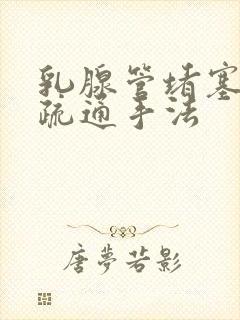 乳腺管堵塞
疏通手法
唐夢若影